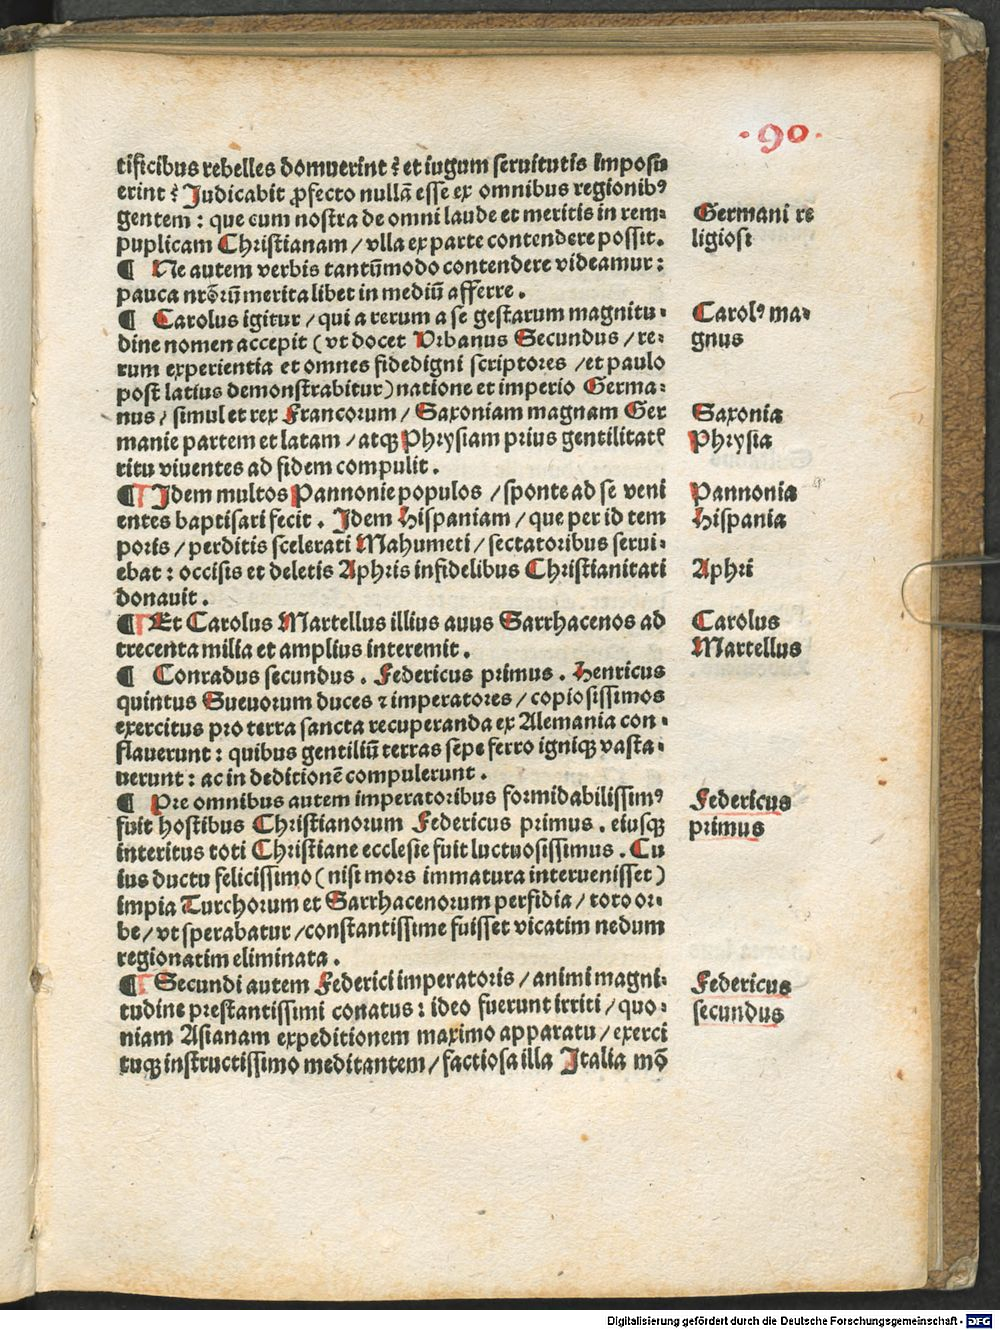 ·90·
tificibus rebelles domuerint? et iugum seruitutis imposu
erint? Iudicabit ꝓfecto nullã esse ex omnibus regionibꝰ
gentem: que cum nostra de omni laude et meritis in rem-
puplicam Christianam / vlla ex parte contendere possit.
Germani re
ligiosi
¶ Ne autem verbis tantũmodo contendere videamur:
pauca nrõrũ merita libet in mediũ afferre.
¶ Carolus igitur / qui a rerum a se gestarum magnitu-
dine nomen accepit (vt docet Vrbanus Secundus / re-
rum experientia et omnes fidedigni scriptores / et paulo
post latius demonstrabitur) natione et imperio Germa-
nus / simul et rex Francorum / Saxoniam magnam Ger
manie partem et latam / atqꝫ Phrysiam prius gentilitatẽ
ritu viuentes ad fidem compulit.
Carolꝰ ma-
gnus
Saxonia
Phrysia
¶ Idem multos Pannonie populos / sponte ad se veni
entes baptisari fecit. Idem Hispaniam / que per id tem
poris / perditis scelerati Mahumeti / sectatoribus serui-
ebat: occisis et deletis Aphris infidelibus Christianitati
donauit.
Pannonia
Hispania
Aphri
¶ Et Carolus Martellus illius auus Sarrhacenos ad
trecenta milia et amplius interemit.
Carolus
Martellus
¶ Conradus secundus. Federicus primus. Henricus
quintus Sueuorum duces ⁊ imperatores / copiosissimos
exercitus pro terra sancta recuperanda ex Alemania con-
flauerunt: quibus gentiliũ terras sepe ferro igniqꝫ vasta-
uerunt: ac in deditionẽ compulerunt.
¶ Pre omnibus autem imperatoribus formidabilissimꝰ
fuit hostibus Christianorum Federicus primus. eiusqꝫ
interitus toti Christiane ecclesie fuit luctuosissimus. Cu
ius ductu felicissimo (nisi mors immatura interuenisset)
impia Turchorum et Sarrhacenorum perfidia / toto or-
be / vt sperabatur / constantissime fuisset vicatim nedum
regionatim eliminata.
Federicus
primus
¶ Secundi autem Federici imperatoris / animi magni-
tudine prestantissimi conatus: ideo fuerunt irriti / quo-
niam Asianam expeditionem maximo apparatu / exerci
tuqꝫ instructissimo meditantem / factiosa illa Italia mõ
Federicus
secundus
Digitalisierung gefördert durch die Deutsche Forschungsgemeinschaft - DFG